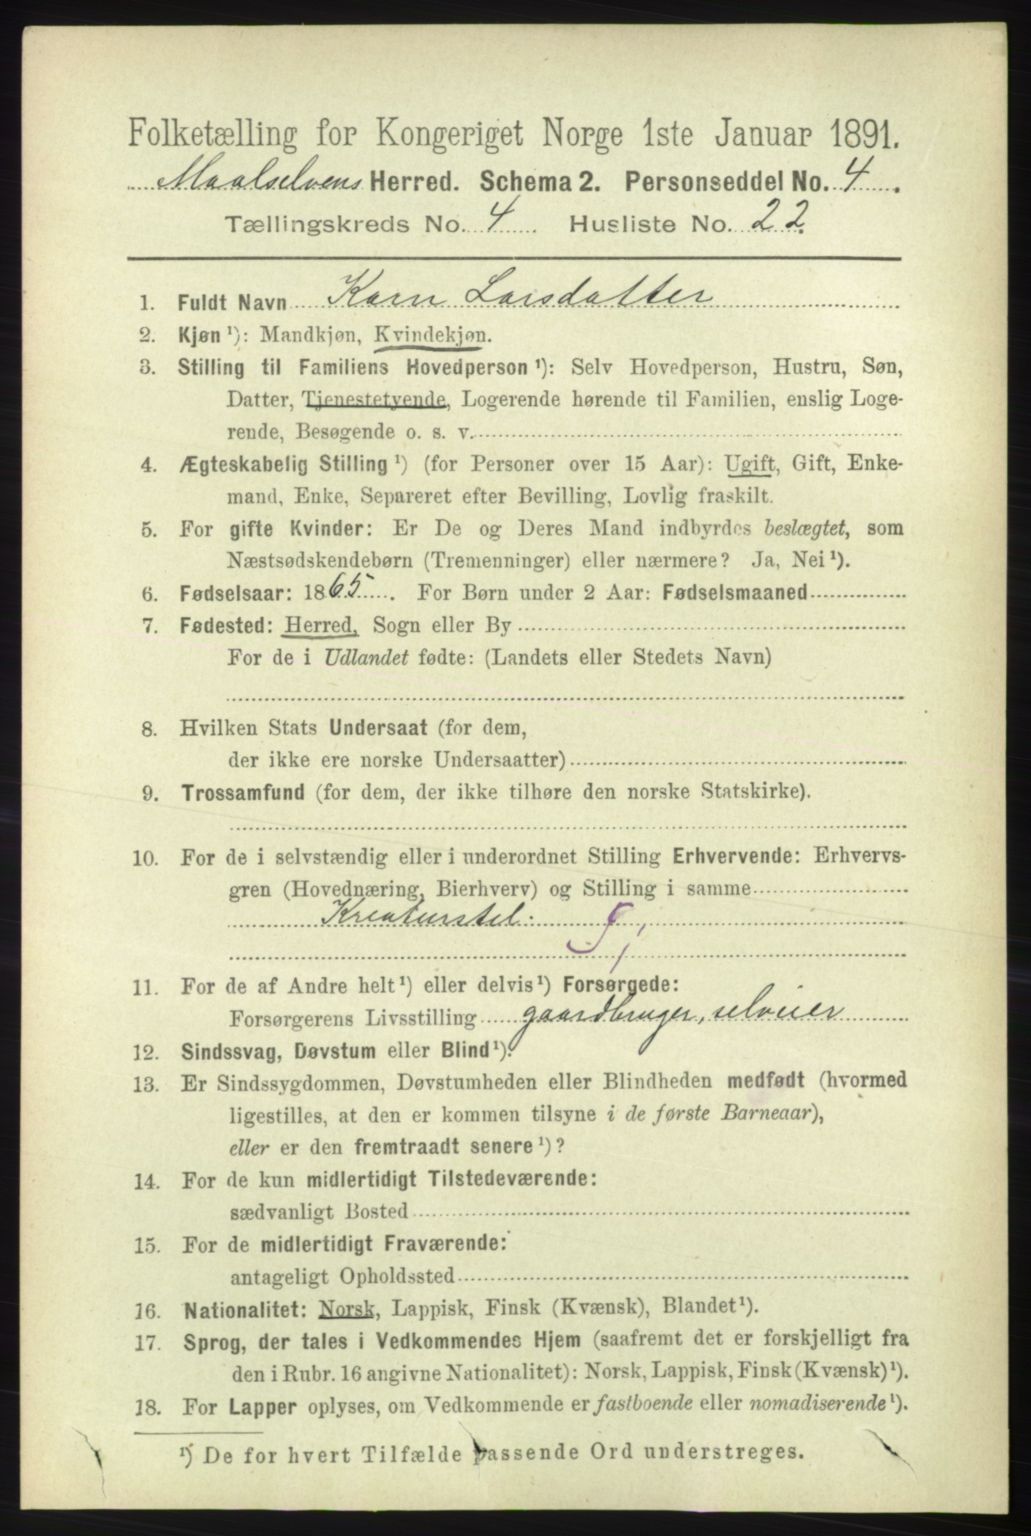 Folketælling for Kongeriget Norge 1ste Januar 1891.
Maalselvens Herred. Schema 2. Personseddel No. 4.
Tællingskreds No. 4 Husliste No. 22.
1. Fuldt Navn Karn Larsdatter
2. Kjøn ¹): Mandkjøn, Kvindekjøn.
3. Stilling til Familiens Hovedperson ¹): Selv Hovedperson, Hustru, Søn,
Datter, Tjenestetyende, Logerende hørende til Familien, enslig Loge-
rende, Besøgende o. s. v.
4. Ægteskabelig Stilling ¹) (for Personer over 15 Aar): Ugift, Gift, Enke-
mand, Enke, Separeret efter Bevilling, Lovlig fraskilt.
5. For gifte Kvinder: Er De og Deres Mand indbyrdes beslægtet, som
Næstsødskendebørn (Tremenninger) eller nærmere? Ja, Nei ¹).
6. Fødselsaar: 1865. For Børn under 2 Aar: Fødselsmaaned
7. Fødested: Herred, Sogn eller By
For de i Udlandet fødte: (Landets eller Stedets Navn)
8. Hvilken Stats Undersaat (for dem,
der ikke ere norske Undersaatter)
9. Trossamfund (for dem, der ikke tilhøre den norske Statskirke).
10. For de i selvstændig eller i underordnet Stilling Erhvervende: Erhvervs-
gren (Hovednæring, Bierhverv) og Stilling i samme
Kreaturstel.
11. For de af Andre helt ¹) eller delvis ¹) Forsørgede:
Forsørgerens Livsstilling gaardbruger, selveier
12. Sindssvag, Døvstum eller Blind ¹).
13. Er Sindssygdommen, Døvstumheden eller Blindheden medfødt (hvormed
ligestilles, at den er kommen tilsyne i de første Barneaar),
eller er den fremtraadt senere ¹)?
14. For de kun midlertidigt Tilstedeværende:
sædvanligt Bosted
15. For de midlertidigt Fraværende:
antageligt Opholdssted
16. Nationalitet: Norsk, Lappisk, Finsk (Kvænsk), Blandet ¹).
17. Sprog, der tales i Vedkommendes Hjem (saafremt det er forskjelligt fra
den i Rubr. 16 angivne Nationalitet): Norsk, Lappisk, Finsk (Kvænsk) ¹).
18. For Lapper oplyses, om Vedkommende er fastboende eller nomadiserende ¹).
¹) De for hvert Tilfælde passende Ord understreges.